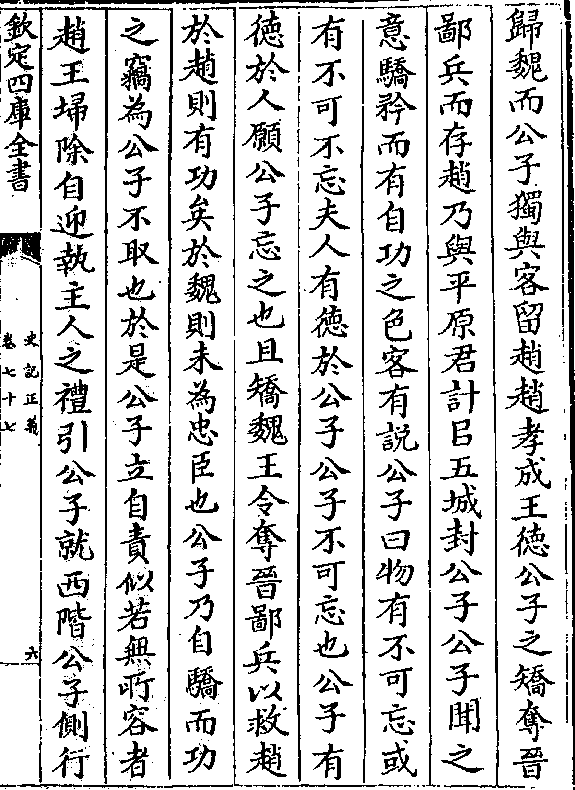 歸魏而公子獨與客留趙趙孝成王徳公子之矯奪晉
鄙兵而存趙乃與平原君計㠯五城封公子公子聞之
意驕矜而有自功之色客有說公子曰物有不可忘或
有不可不忘夫人有徳於公子公子不可忘也公子有
徳於人願公子忘之也且矯魏王令奪晉鄙兵以救趙
於趙則有功矣於魏則未為忠臣也公子乃自驕而功
之竊為公子不取也於是公子立自責似若無所容者
趙王埽除自迎執主人之禮引公子就西階公子側行
欽定四庫全書
史記正義
卷七十七
六